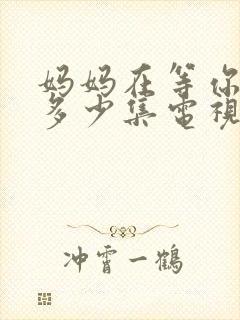 妈妈在等你
多少集電視
冲霄一鶴